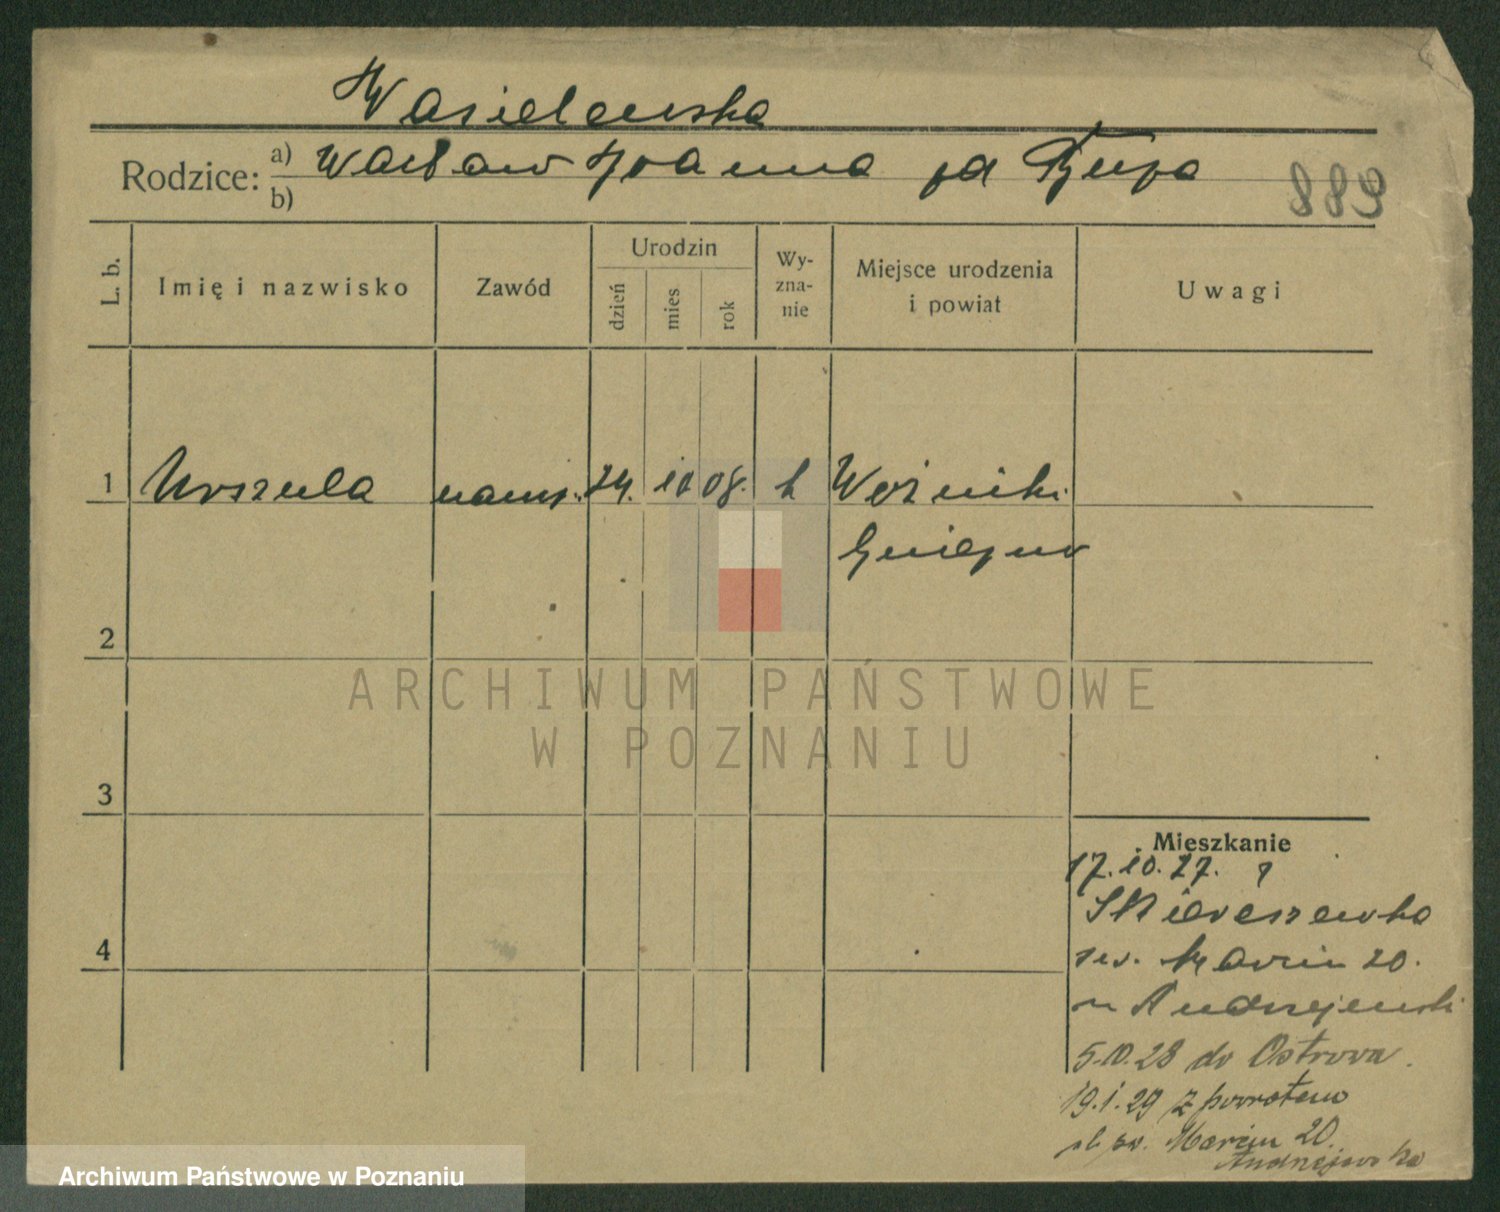 Wasielewska
Rodzice: a) Wacław Joanna
b)
889
L. b.
Imię i nazwisko
Zawód
Urodzin
dzień
mies
rok
Wy-
zna-
nie
Miejsce urodzenia
i powiat
Uwagi
1 Urszula naucz. 24. 10 08. k Woźniki
Gniezno
2
3
4
Mieszkanie
17.10.27. z
Skiereszewka
św. Marcin 20.
u Andrzejewski
5.10.28 do Ostrowa.
19.1.29 z powrotem
ul. św. Marcin 20.
Andrzejewska
ARCHIWUM PAŃSTWOWE
W POZNANIU
Archiwum Państwowe w Poznaniu